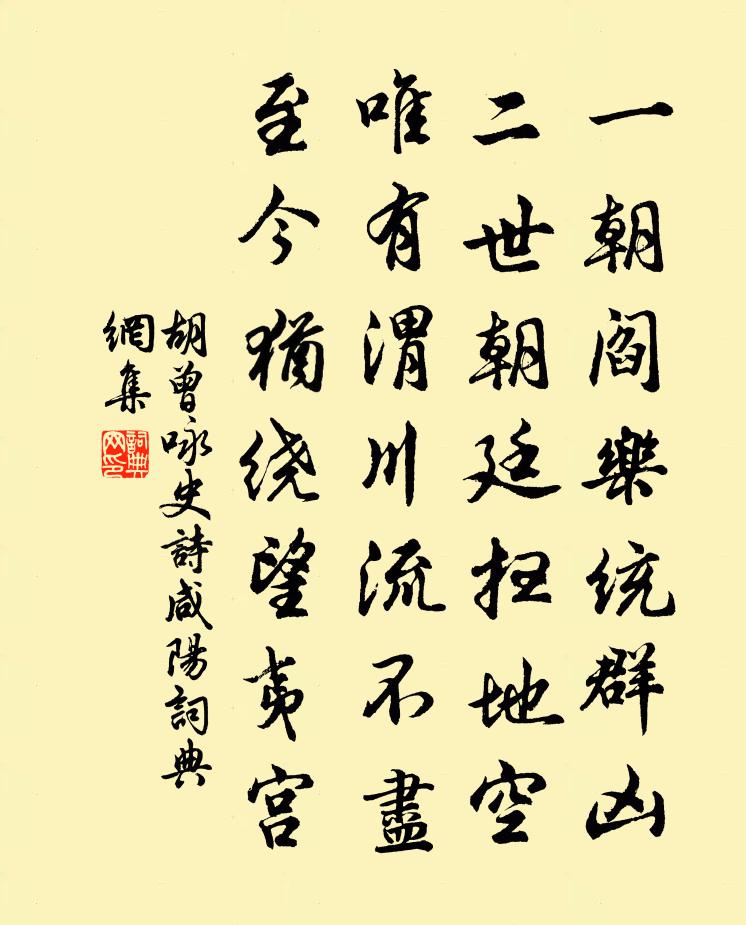 一朝阎樂统群凶
二世朝廷扫地空
唯有渭川流不盡
至今猶绕望夷宫
胡曾咏史詩咸陽詞典
網集
詞典
网印